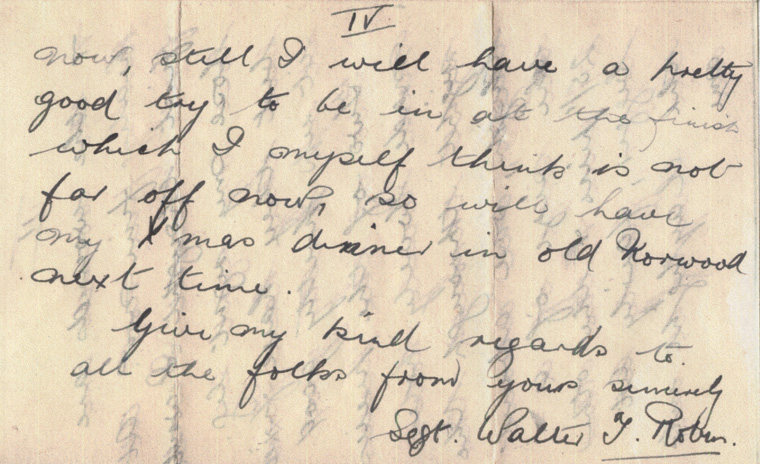 IV
now, still I will have a pretty
good try to be in at the finish
which I myself think is not
far off now, so will have
my Xmas dinner in old Norwood
next time.
Give my kind regards to
all the folks from yours sincerely
Sgt. Walter T. Robin.